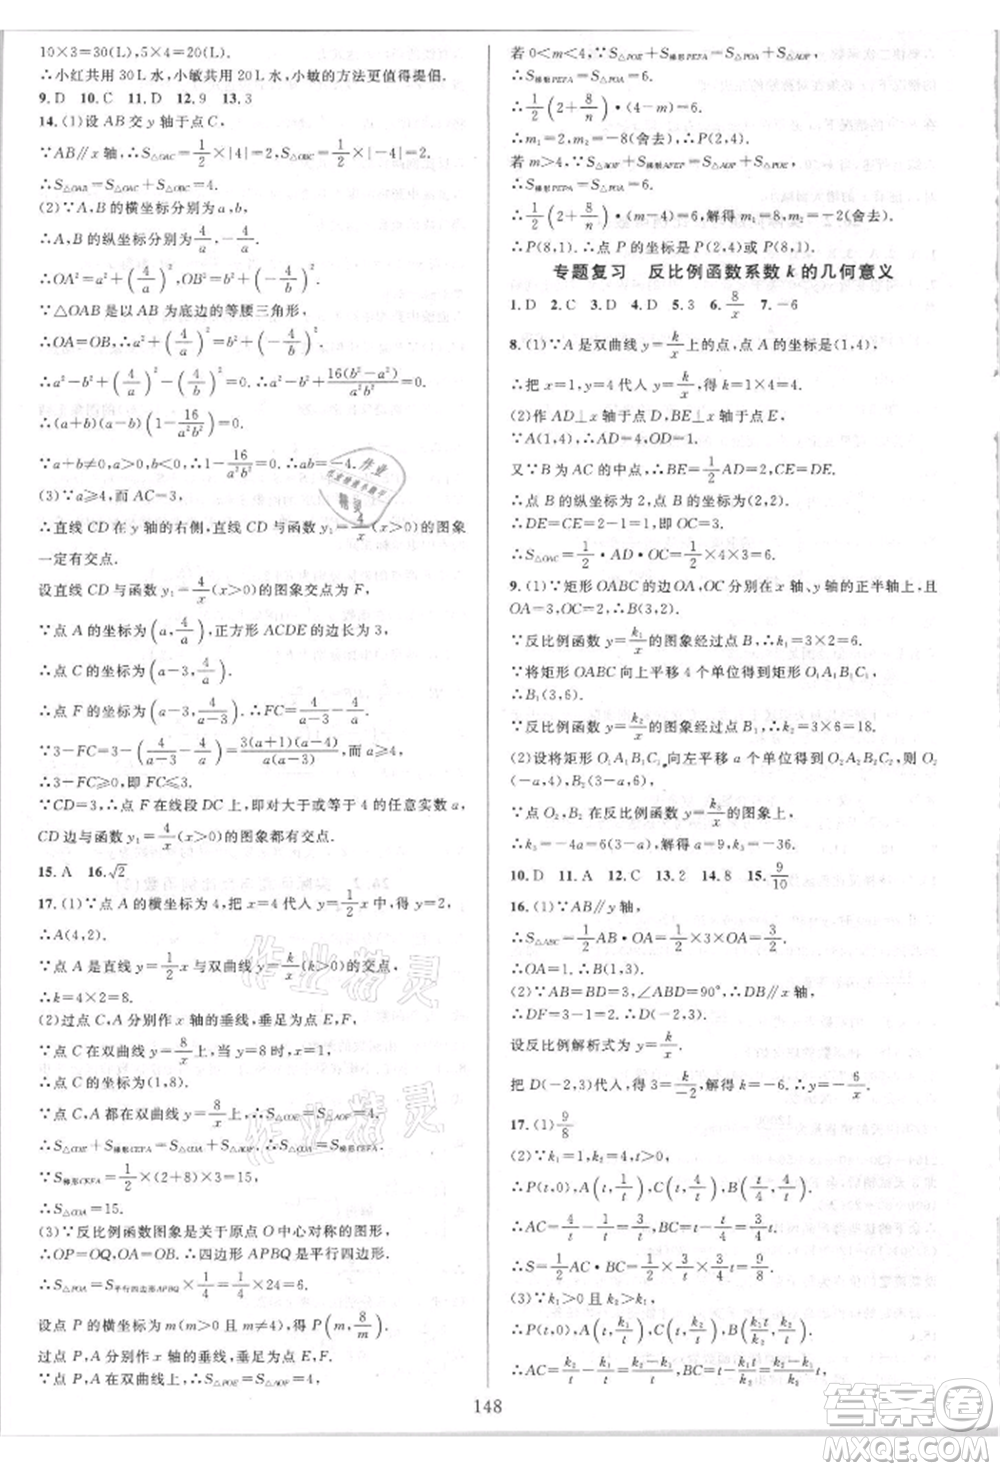 10×3=30(L),5×4=20(L).
∴小红共用30L水,小敏共用20L水,小敏的方法更值得提倡.
9.D 10.C 11.D 12.9 13.3
14.(1)设AB交y轴于点C,
∵AB∥x轴,∴S△OAC=1/2×|4|=2,S△OBC=1/2×|-4|=2.
∴S△OAB=S△OAC+S△OBC=4.
(2)∵A,B的横坐标分别为a,b,
∴A,B的纵坐标分别为4/a,-4/b.
∴OA²=a²+(4/a)²,OB²=b²+(-4/b)².
∵△OAB是以AB为底边的等腰三角形,
∴OA=OB,∴a²+(4/a)²=b²+(-4/b)².
∴a²-b²+(4/a)²-(4/b)²=0.∴a²-b²+16(b²-a²)/a²b²=0.
∴(a+b)(a-b)(1-16/a²b²)=0.
∵a+b≠0,a>0,b<0,∴1-16/a²b²=0.∴ab=-4.
(3)∵a≥4,而AC=3,
∴直线CD在y轴的右侧,直线CD与函数y₁=4/x(x>0)的图象
一定有交点.
设直线CD与函数y₁=4/x(x>0)的图象交点为F,
∵点A的坐标为(a,4/a),正方形ACDE的边长为3,
∴点C的坐标为(a-3,4/a).
∴点F的坐标为(a-3,4/(a-3)).∴FC=4/(a-3)-4/a.
∵3-FC=3-(4/(a-3)-4/a)=3(a+1)(a-4)/a(a-3),而a≥4,
∴3-FC≥0,即FC≤3.
∵CD=3,∴点F在线段DC上,即对大于或等于4的任意实数a,
CD边与函数y₁=4/x(x>0)的图象都有交点.
15.A 16.√2
17.(1)∵点A的横坐标为4,把x=4代入y=1/2x中,得y=2.
∴A(4,2).
∵点A是直线y=1/2x与双曲线y=k/x(k>0)的交点,
∴k=4×2=8.
(2)过点C,A分别作x轴的垂线,垂足为点E,F,
∵点C在双曲线y=8/x上,当y=8时,x=1,
∴点C的坐标为(1,8).
∵点C,A都在双曲线y=8/x上,∴S△COE=S△AOF=4.
∴S△COE+S梯形CEFA=S△COA+S△AOF.∴S△COA=S梯形CEFA.
∵S梯形CEFA=1/2×(2+8)×3=15,
∴S△COA=15.
(3)∵反比例函数图象是关于原点O中心对称的图形,
∴OP=OQ,OA=OB.∴四边形APBQ是平行四边形.
∴S△POA=S平行四边形APBQ×1/4=1/4×24=6.
设点P的横坐标为m(m>0且m≠4),得P(m,8/m).
过点P,A分别作x轴的垂线,垂足为点E,F,
∵点P,A在双曲线上,∴S△POE=S△AOF=4,
若0<m<4,∵S△POE+S梯形PEFA=S△POA+S△AOF,
∴S梯形PEFA=S△POA=6.
∴1/2(2+8/m)·(4-m)=6.
∴m₁=2,m₂=-8(舍去).∴P(2,4).
若m>4,∵S△AOF+S梯形AFEP=S△AOP+S△POE,
∴S梯形AFEP=S△POA=6.
∴1/2(2+8/n)·(m-4)=6,解得m₁=8,m₂=-2(舍去).
∴P(8,1).∴点P的坐标是P(2,4)或P(8,1).
专题复习 反比例函数系数k的几何意义
1.D 2.C 3.D 4.D 5.3 6.8/x 7.-6
8.(1)∵A是双曲线y=k/x上的点,点A的坐标是(1,4),
∴把x=1,y=4代入y=k/x,得k=1×4=4.
(2)作AD⊥x轴于点D,BE⊥x轴于点E,
∵A(1,4),∴AD=4,OD=1.
又∵B为AC的中点,∴BE=1/2AD=2,CE=DE.
∴点B的纵坐标为2,点B的坐标为(2,2).
∴DE=CE=2-1=1,即OC=3.
∴S△OAC=1/2·AD·OC=1/2×4×3=6.
9.(1)∵矩形OABC的边OA,OC分别在x轴、y轴的正半轴上,且
OA=3,OC=2,∴B(3,2).
∵反比例函数y=k₁/x的图象经过点B,∴k₁=3×2=6.
∵将矩形OABC向上平移4个单位得到矩形O₁A₁B₁C₁,
∴B₁(3,6).
∵反比例函数y=k₂/x的图象过点B₁,∴k₂=3×6=18.
(2)设将矩形O₁A₁B₁C₁向左平移a个单位得到O₂A₂B₂C₂,则O₂
(-a,4),B₂(3-a,6).
∵点O₂,B₂在反比例函数y=k₃/x的图象上,
∴k₃=-4a=6(3-a),解得a=9,∴k₃=-36.
10.D 11.A 12.C 13.2 14.8 15.9/10
16.(1)∵AB∥y轴,
∴S△ABC=1/2AB·OA=1/2×3×OA=3/2.
∴OA=1.∴B(1,3).
(2)∵AB=BD=3,∠ABD=90°,∴DB∥x轴.
∴DF=3-1=2.∴D(-2,3).
设反比例解析式为y=k/x,
把D(-2,3)代入,得3=k/-2,解得k=-6.∴y=-6/x.
17.(1)9/8
(2)∵k₁=1,k₂=4,
∴P(t,0),A(t,1/t),B(t/4,4/t),C(t,4/t).
∴AC=4/t-1/t=3/t,BC=t-t/4=3/4t.
∴S=1/2AC·BC=1/2×3/t×3/4t=9/8.
(3)∵k₁>0且k₁<k₂,
∴P(t,0),A(t,k₁/t),B(k₁/k₂t,k₂/t),C(t,k₂/t).
∴AC=k₂/t-k₁/t=(k₂-k₁)/t,BC=t-k₁/k₂t=(k₂-k₁)/k₂t,
148
作业精灵
作业精灵
答案圈
MXQE.COM